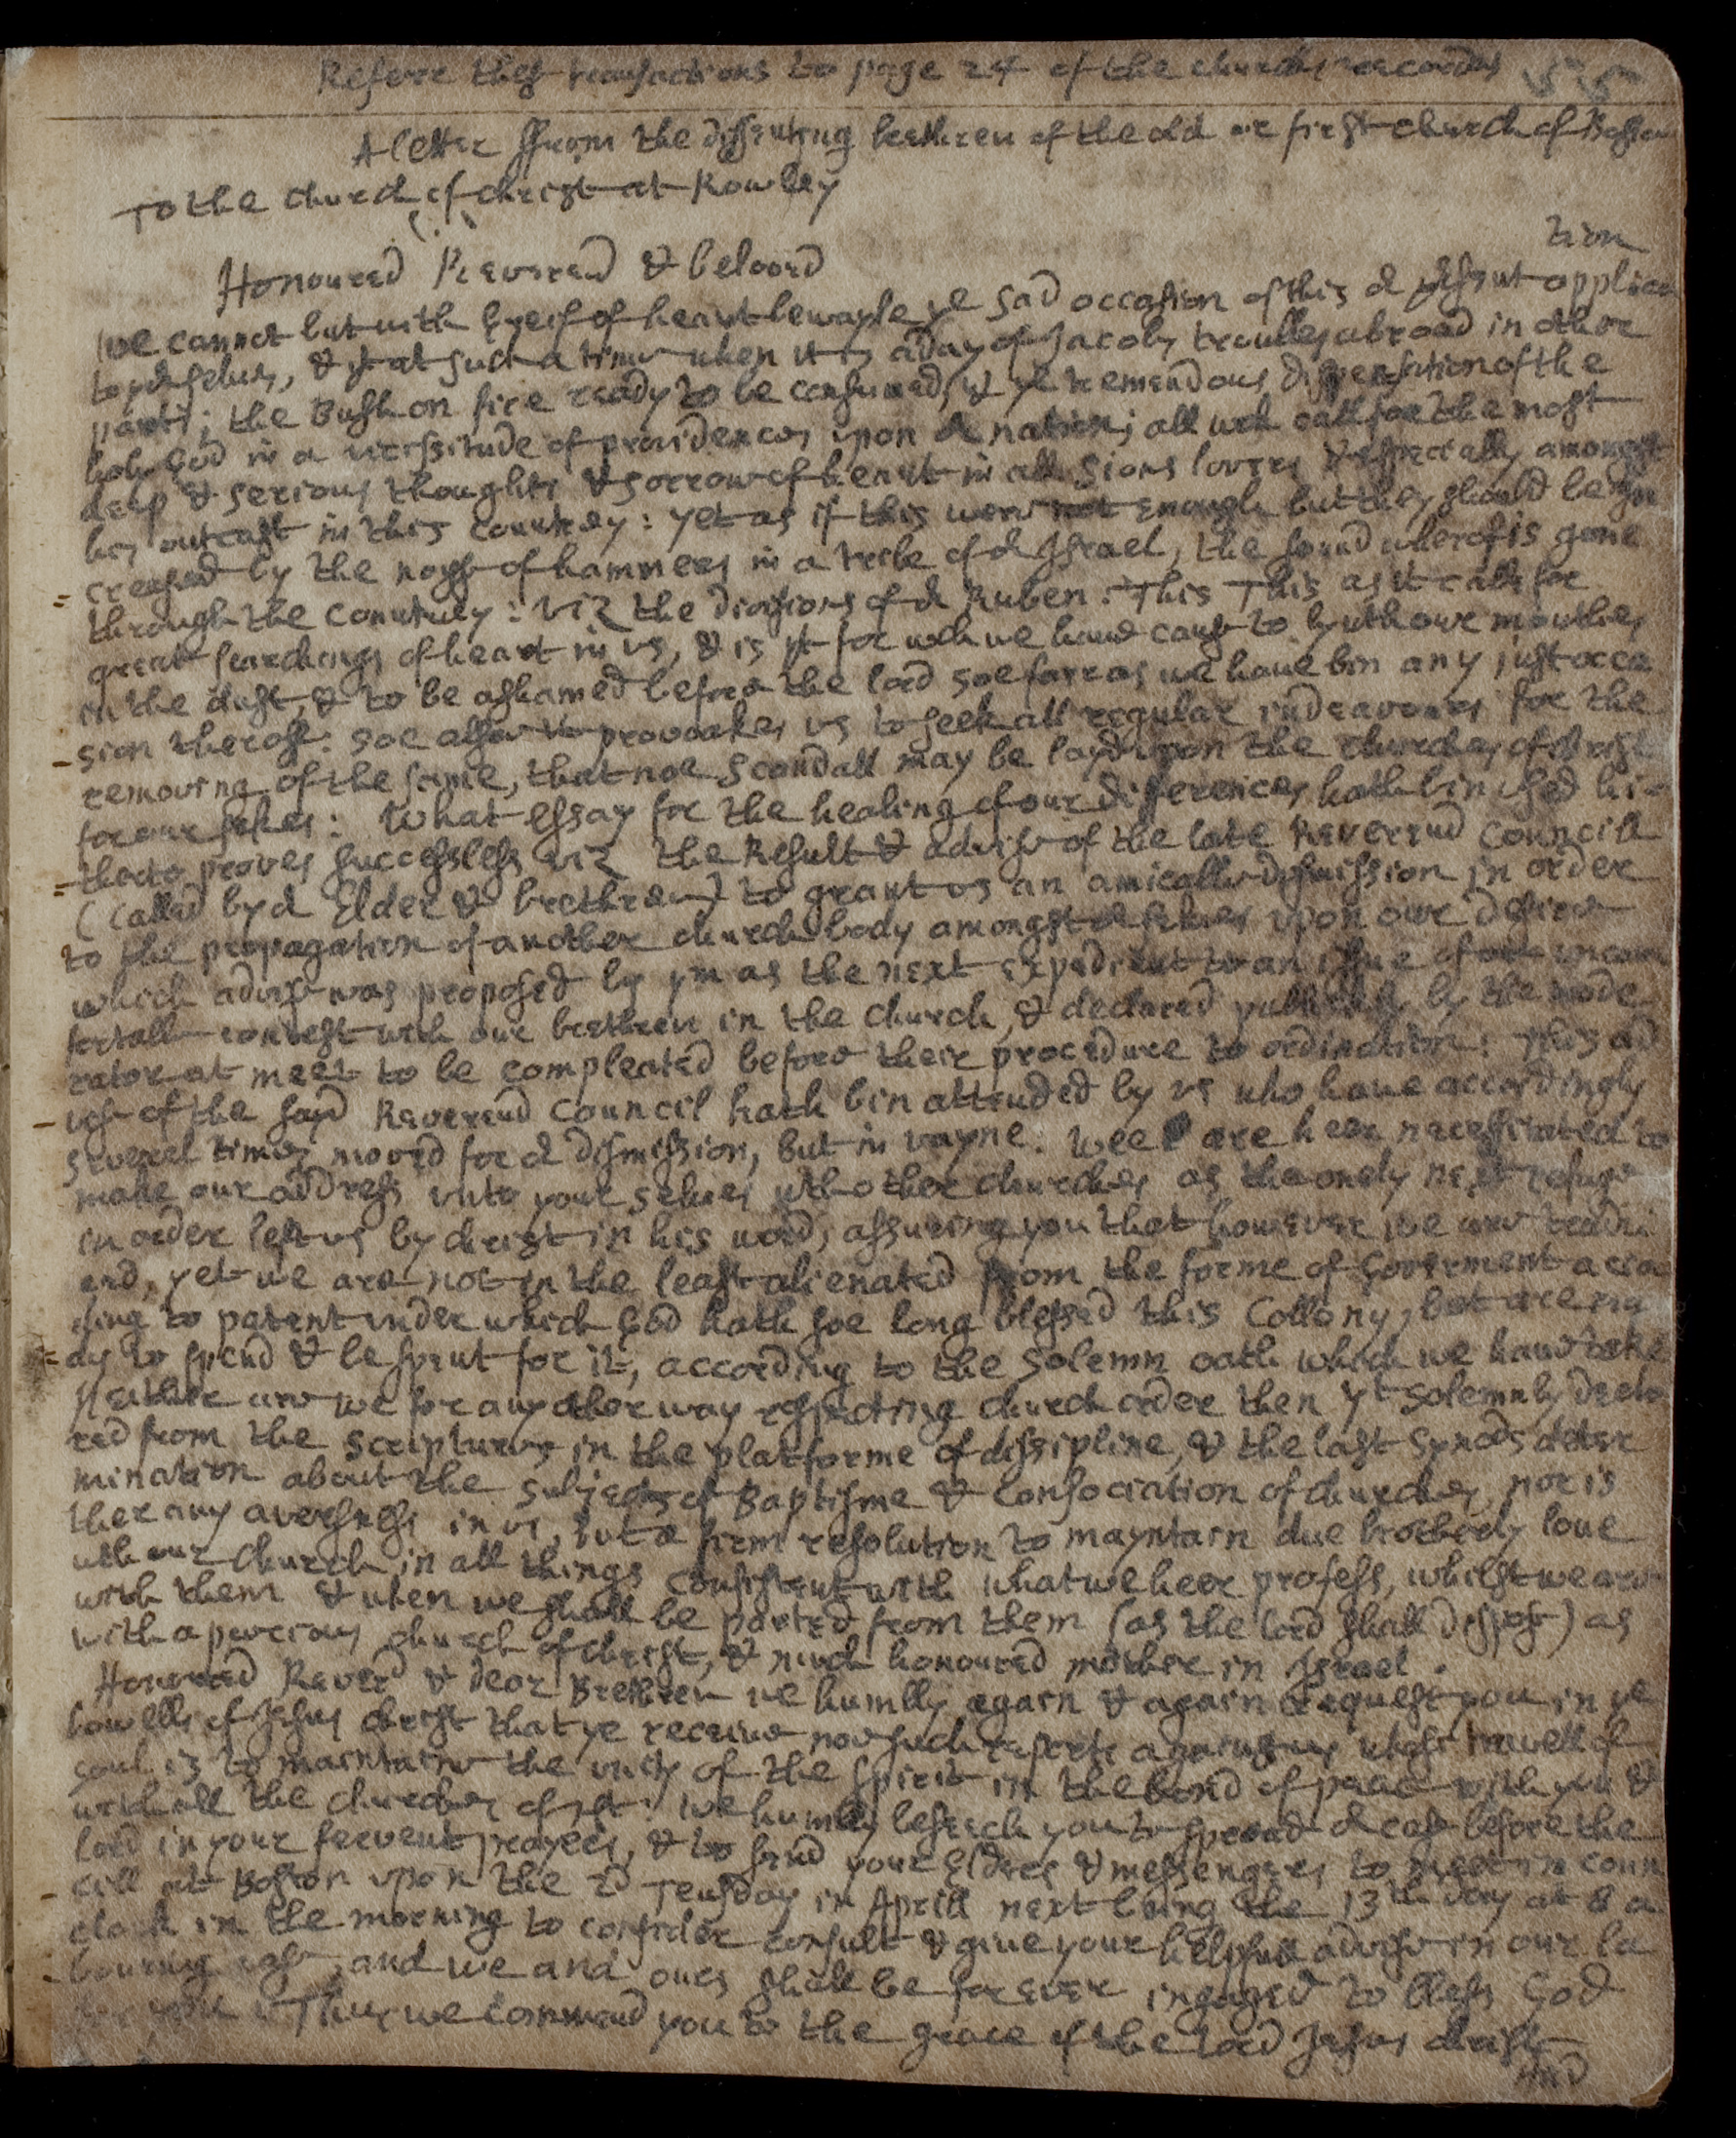 Refere thes transactions to page 24 of the church records 55
A letter ffrom the dissenting brethren of the old or first church of Boston
To the church of christ at Rowley
Honoured Reverend & beloved
tion
we cannot but with greif of heart bewayle ye sad occasion of this or present applica
to yorselves, & yt at such a time when it is a day of Jacobs troubles abroad in other
parts; the Bush on fire ready to be consumed, & ye tremendous dispensation of the
holy God in a vicissitude of providences upon or nation; all wch call for the most
deep & serious thoughts & sorrow of heart in all Sions lovers & especially amongst
his outcast in this Countrey: yet as if this were not enough but they should be in
= creased by the noyse of hammers in a tribe of or Israel, the sound wherof is gone
through the Countrey: viz the divisions of or Ruben. This This as it calls for
great searchings of heart in us, & is yt for wch we have cause to ly with our mouthes
in the dust, & to be ashamed before the lord soe farr as we have bin any just occa
- sion therof: soe also it provoakes us to seek all regular indeavours for the
removing of the same, that noe scandall may be layd upon the churches of christ
for our sakes: What essay for the healing of our differences hath bin used hi-
= therto proves successless viz the Result & advise of the late Reverend Councill
(called by or Elder & brethren) to grant us an amicable dismission in order
to the propagation of another church body amongst or selves upon our desire
which advise was proposed by ym as the next expedient to an issue of our uncom
fortable contest with our brethren in the church, & declared publickly by the mode
rator at meet to be compleated before their procedure to ordination: This ad
- vise of the sayd Reverend Council hath bin attended by us who have accordingly
severel times moved for or dismission, but in vayne. Wee are heer necessitated to
make our address unto your selves wth other churches as the onely next refuge
in order left us by christ in his word, assuring you that however we are traduc
end, yet we are not in the least alienated from the forme of Goverment accor
ding to patent under which God hath soe long blessed this Collony, but are rea
= dy to spend & be spent for it, according to the Solemn oath which we have take
Neither are we for any other way respecting church order then yt Solemnly decla
red from the Scriptures in the platforme of dissipline, & the last Synods deter
mination about the Subjects of Baptisme & Consociation of churches, nor is
ther any aversness in us, but a firm resolution to mayntain due brotherly love
wth our church in all things consistent with what we heer profess, whilst we are
with them & when we shall be parted from them (as the lord shall dispose) as
with a pretious church of christ, & much honoured mother in Israel.
Honored Reverd & dear Brethren we humbly again & again request you in ye
bowells of Jesus christ that ye receive no such reports against us whose travell of
soul is to maintaine the unity of the spirit in the bond of peace with you &
with all the churches of xt: we humbly beseech you to spread or case before the
lord in your fervent prayers, & to send your Elders & messengers to meet in coun
- cill at Boston upon the 2d Teusday in Aprill next being the 13th day at 8 a
clock in the morning to consider consult & give your helpfull advise in our la
- bouring case, and we and ours shall be for ever ingaged to bless God
for you: Thus we commend you to the grace of the lord Jesus christ
And